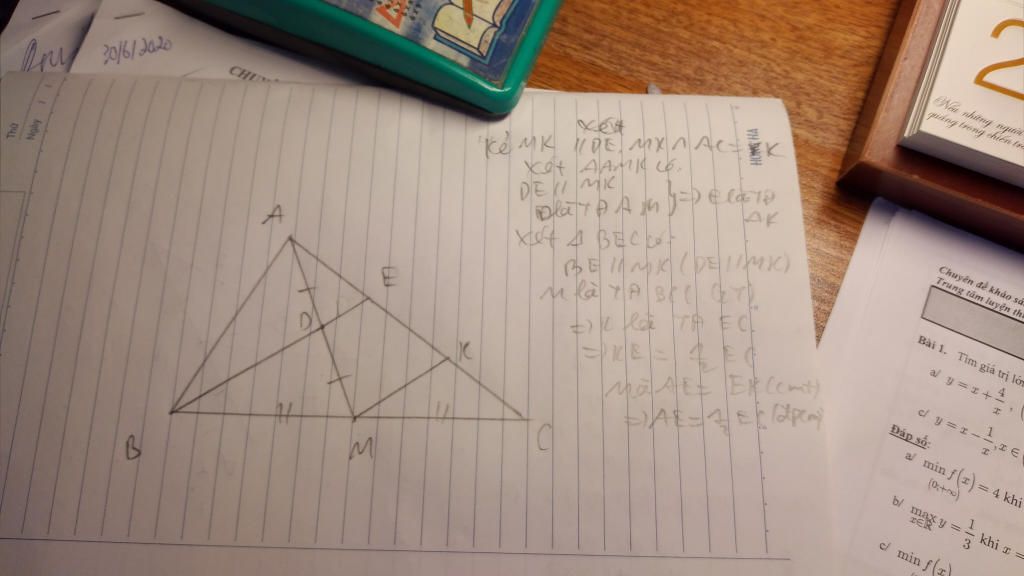 30/6/2020
CHUY
Thứ
Ngày
HỒNG HÀ
2
Nếu những người
quãng trong chiến tr
Xét
Kẻ MK // DE MK ∩ AC = K
Xét ΔAMK có.
DE // MK
D là TĐ AM } => E là TĐ
AK
Xét Δ BEC có.
BE // MK (DE // MK)
M là TĐ BC ( GT)
=> K là TĐ EC
=> KE = 1/2 EC
Mà AE = EK (cmt)
=> AE = 1/2 EC (đpcm)
A
E
D
K
B
M
C
Chuyên đề khảo sá
Trung tâm luyện th
Bài 1. Tìm giá trị lớ
a/ y = x + 4/x, (
c/ y = x - 1/x, x ∈ (
Đáp số:
a/ min f(x) = 4 khi
(0;+∞)
b/ max y = 1/3 khi x =
x∈ℝ
c/ min f(x)